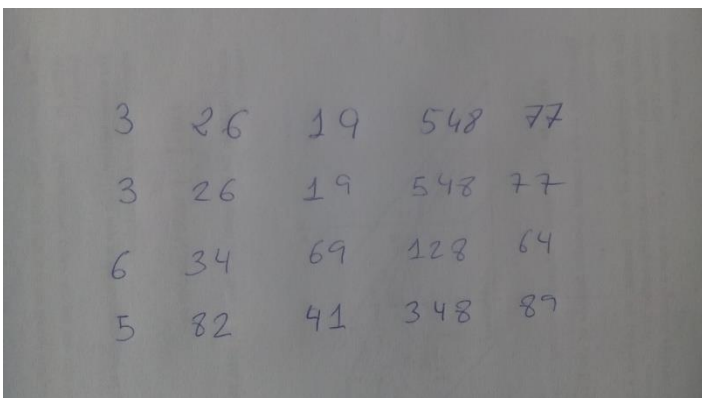 3 26 19 548 77
3 26 19 548 77
6 34 69 128 64
5 82 41 348 89